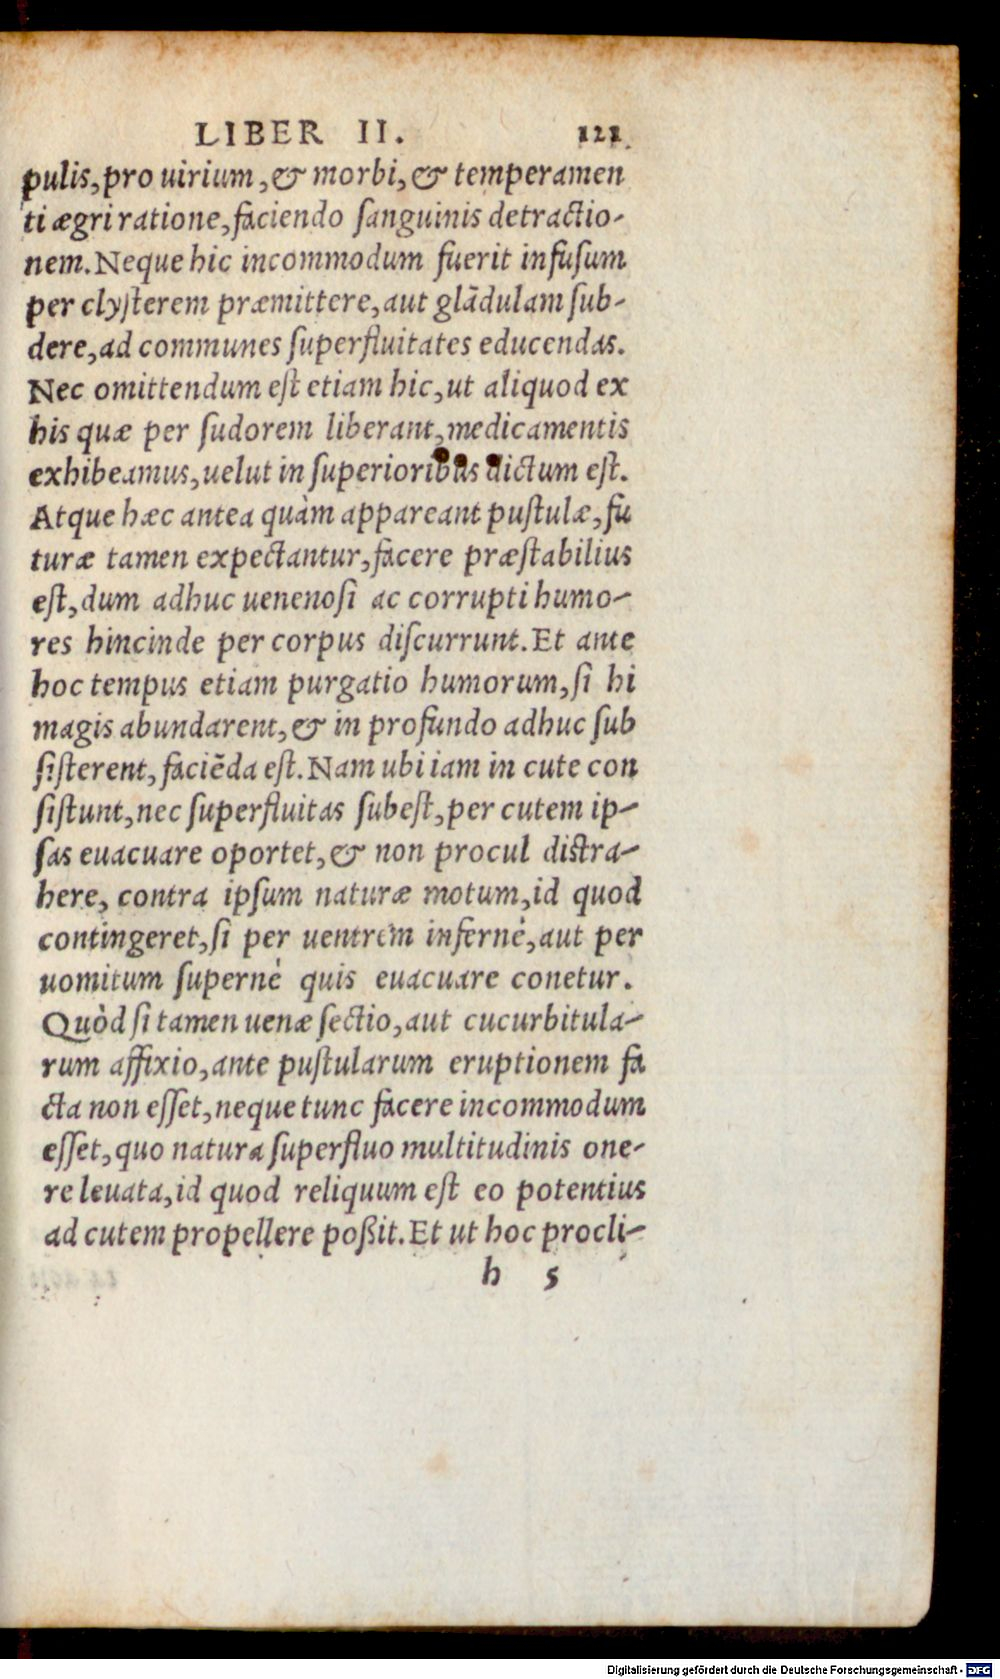 LIBER II. 121
pulis, pro uirium, & morbi, & temperamen
ti ægri ratione, faciendo ſanguinis detractio-
nem. Neque hic incommodum fuerit infuſum
per clyſterem præmittere, aut glādulam ſub-
dere, ad communes ſuperfluitates educendas.
Nec omittendum eſt etiam hic, ut aliquod ex
his quæ per ſudorem liberant, medicamentis
exhibeamus, uelut in ſuperioribus dictum eſt.
Atque hæc antea quàm appareant puſtulæ, fu
turæ tamen expectantur, facere præſtabilius
eſt, dum adhuc uenenoſi ac corrupti humo-
res hincinde per corpus diſcurrunt. Et ante
hoc tempus etiam purgatio humorum, ſi hi
magis abundarent, & in profundo adhuc ſub
ſiſterent, faciēda eſt. Nam ubi iam in cute con
ſiſtunt, nec ſuperfluitas ſubeſt, per cutem ip-
ſas euacuare oportet, & non procul diſtra-
here, contra ipſum naturæ motum, id quod
contingeret, ſi per uentrem infernè, aut per
uomitum ſupernè quis euacuare conetur.
Quòd ſi tamen uenæ ſectio, aut cucurbitula-
rum affixio, ante puſtularum eruptionem fa
cta non eſſet, neque tunc facere incommodum
eſſet, quo natura ſuperfluo multitudinis one-
re leuata, id quod reliquum eſt eo potentius
ad cutem propellere poßit. Et ut hoc procli-
h 5
Digitalisierung gefördert durch die Deutsche Forschungsgemeinschaft - DFG